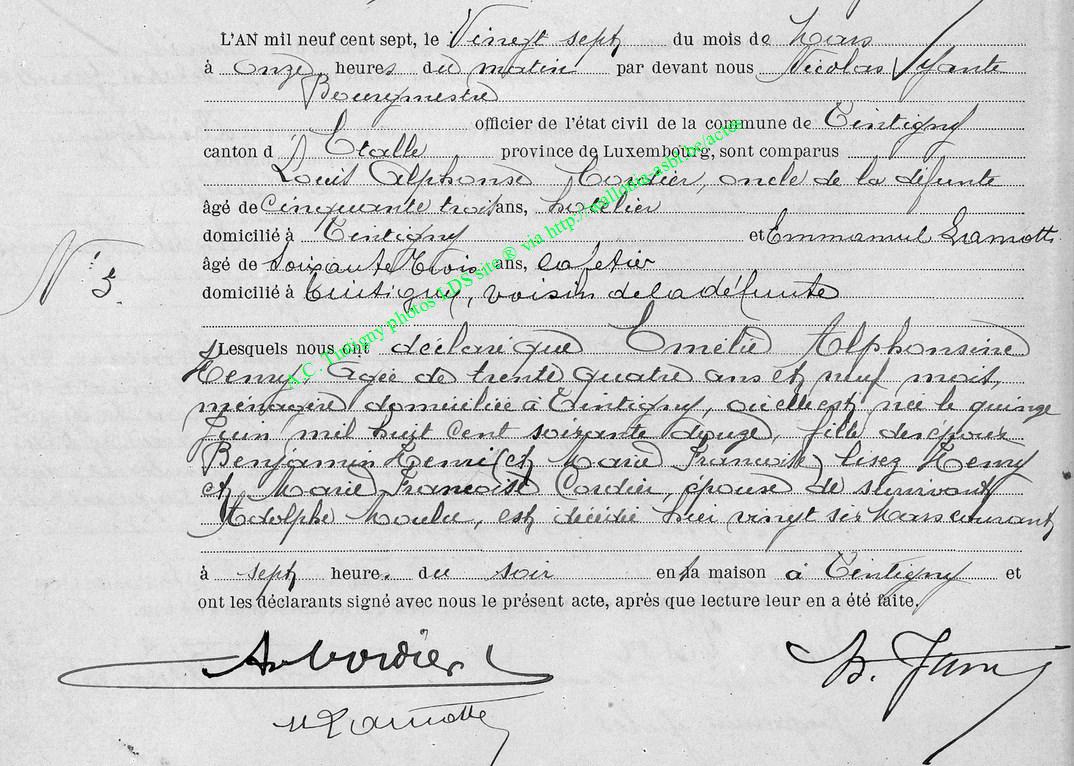 L'AN mil neuf cent sept, le Vingt sept du mois de Mars
à Onze heures du matin par devant nous Nicolas
Bourgmestre
officier de l'état civil de la commune de Tintigny
canton d'Etalle province de Luxembourg, sont comparus
Louis Alphonse Cordier, oncle de la défunte
âgé de Cinquante trois ans, hotelier
domicilié à Tintigny et Emmanuel Lamotte
âgé de Soixante Trois ans, cafetier
N° 5.
domicilié à Tintigny, voisin de la défunte
Lesquels nous ont déclaré que Emélie Alphonsine
Henry, Agée de trente quatre ans et neuf mois,
ménagère domiciliée à Tintigny, où elle est née le quinze
Juin mil huit cent soixante douze, fille des époux
Benjamin Henri et Marie Francoise lisez Henry
et Marie Francoise Cordier, épouse de survivant
Adolphe, est décédée hier vingt six Mars courant
à sept heure. du soir en sa maison à Tintigny et
ont les déclarants signé avec nous le présent acte, après que lecture leur en a été faite.
Cordier
Lamotte
A.C. Tintigny photos LDS site ® via http://wallonia-asbl.be/actes